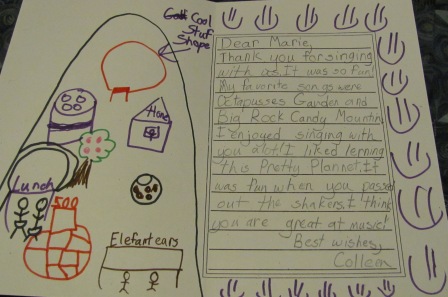 Cool
Stuf
Shope
Home
Lunch
Elefantears
Dear Marie,
Thank you for singing
with as. It was so fun!
My favorite songs were
Octopusses Garden and
Big Rock Candy Mountin
I enjoyed singing with
you alot! I liked lerning
this Pretty Plannot. It
was fun when you passed
out the shakers. I think
you are great at music!
Best wishes,
Colleen